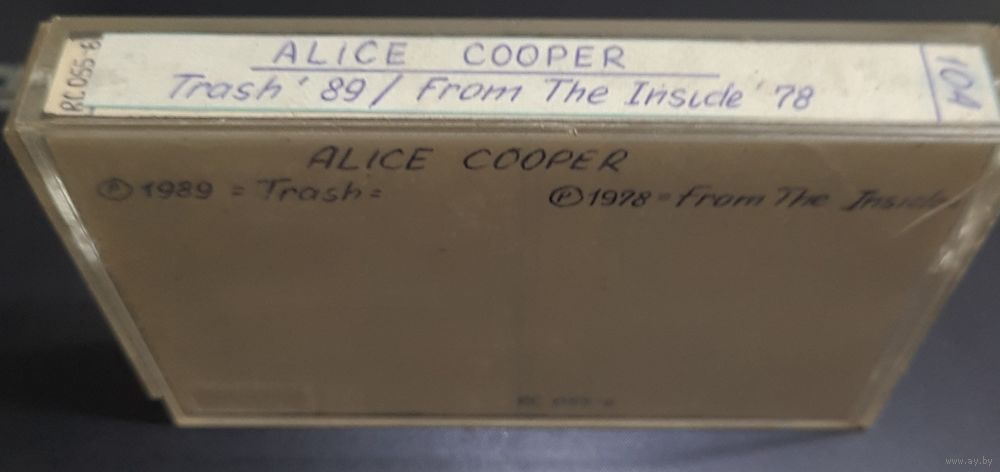 RC 055-E
ALICE COOPER
Trash '89 / From The Inside '78
104
ALICE COOPER
Ⓟ 1989 = Trash =
Ⓟ 1978 = From The Inside
www.ay.by